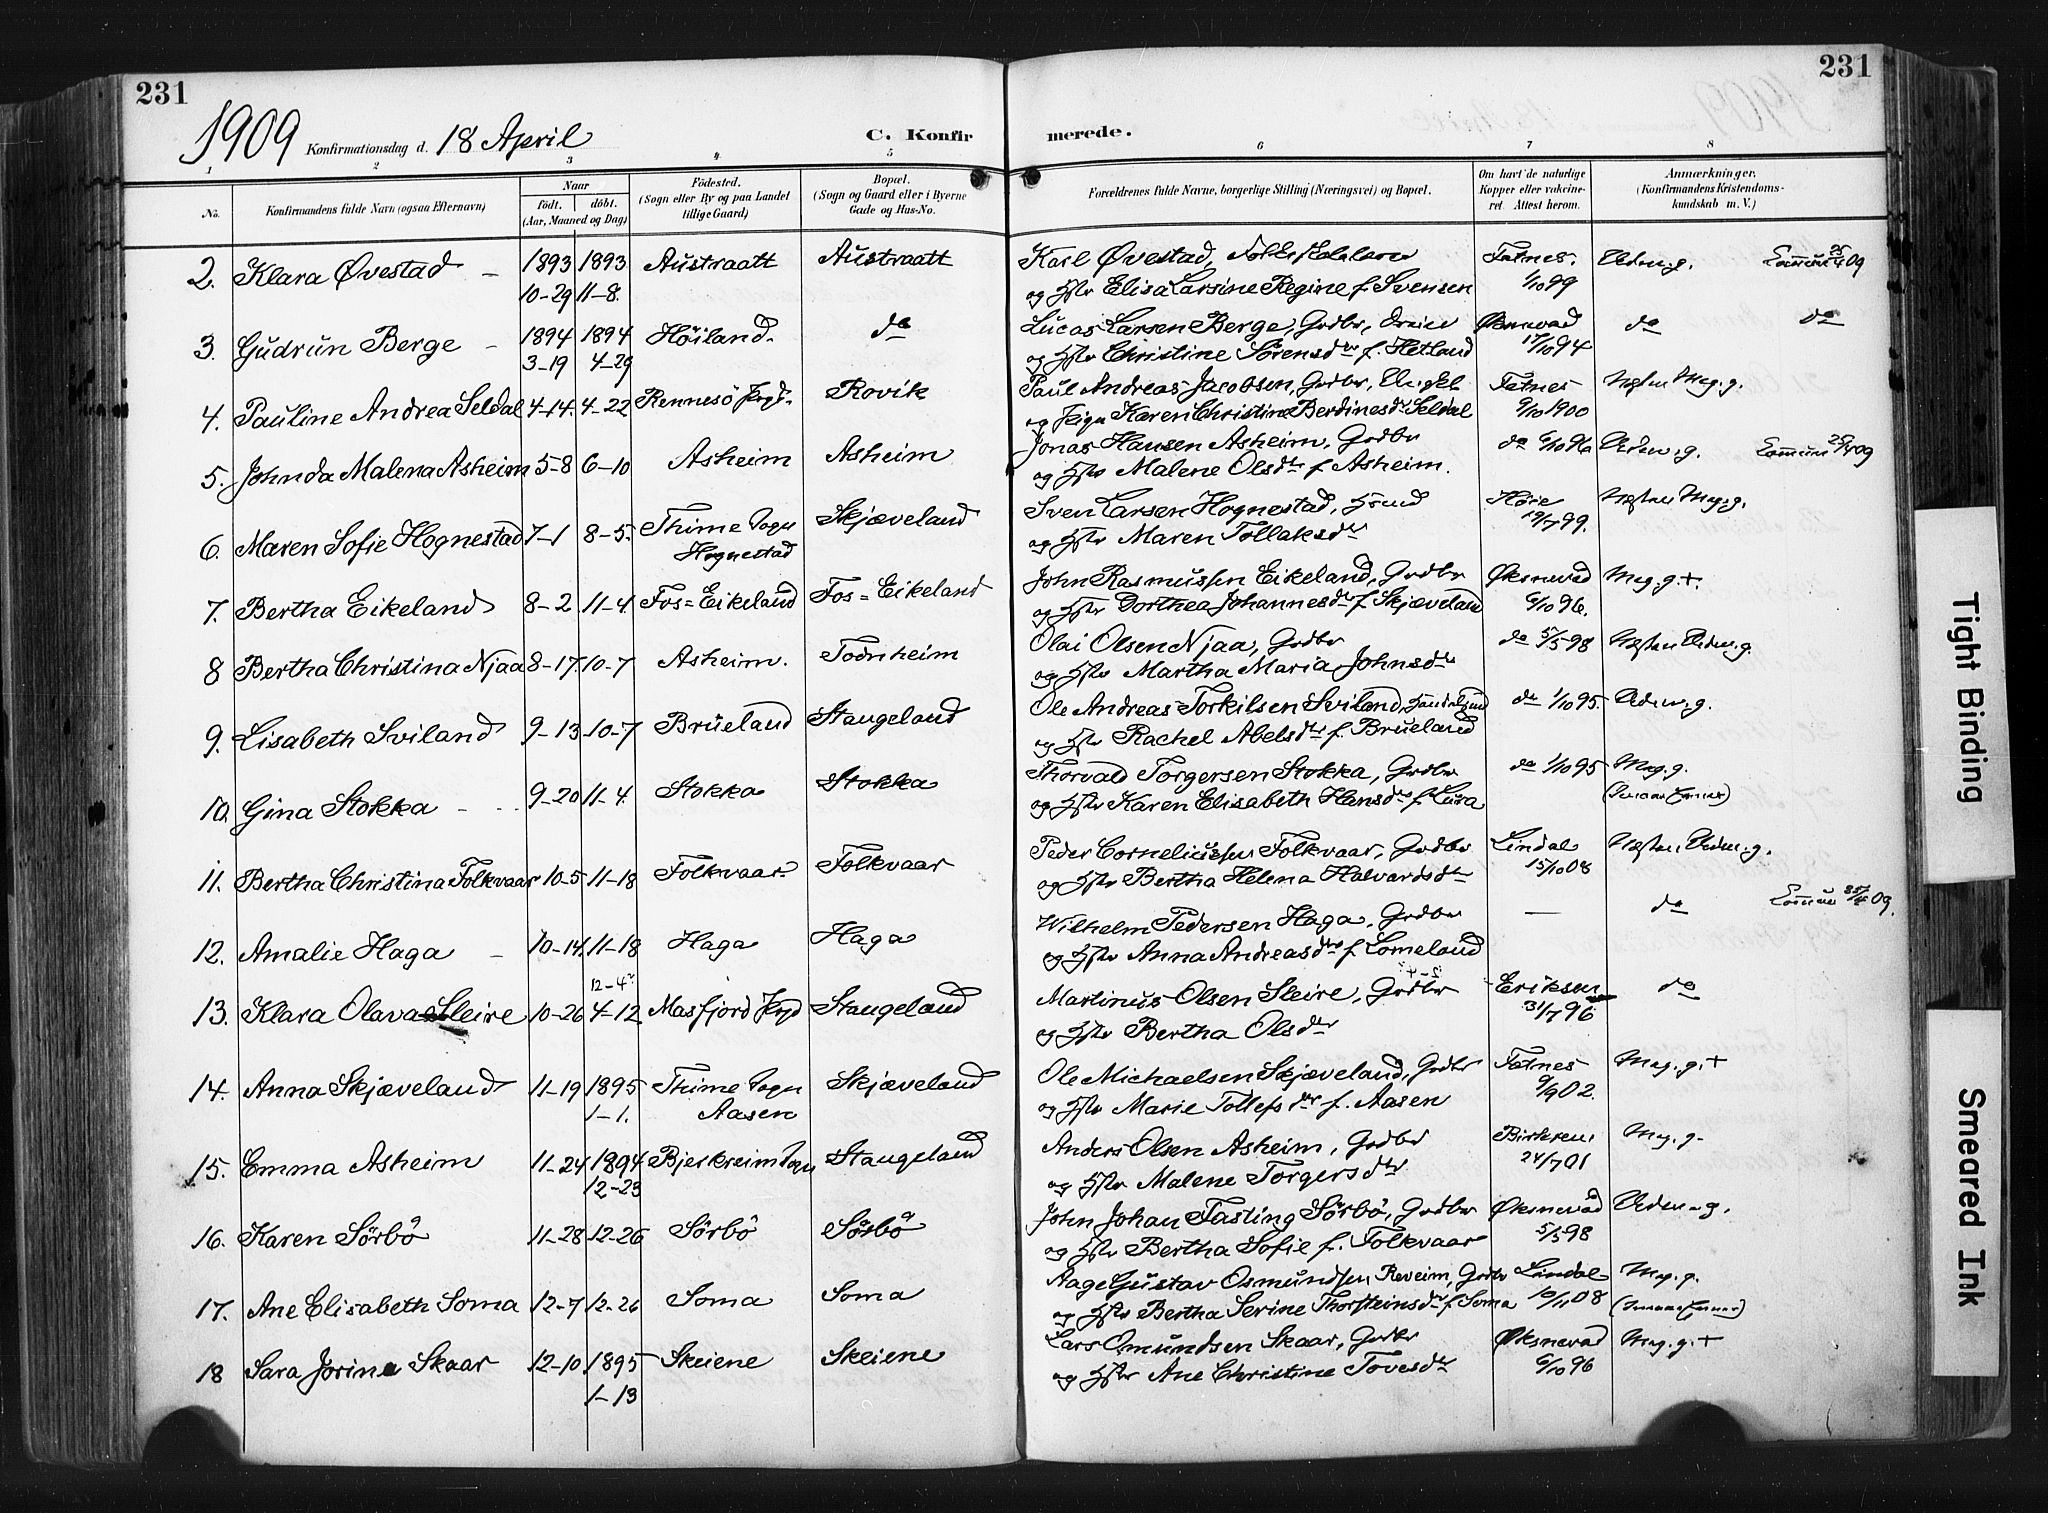 231
231
1909 Konfirmationsdag d. 18 April
C. Konfirmerede.
1 2 3 4 5 6 7 8
No.
Konfirmandens fulde Navn (ogsaa Efternavn)
Naar
födt. döbt.
(Aar, Maaned og Dag)
Födested.
(Sogn eller By og paa Landet
tillige Gaard)
Bopæl.
(Sogn og Gaard eller i Byerne
Gade og Hus-No.
Forældrenes fulde Navne, borgerlige Stilling (Næringsvei) og Bopæl.
Om havt de naturlige
Kopper eller vakcine-
ret. Attest herom.
Anmærkninger.
(Konfirmandens Kristendoms-
kundskab m. V.)
2. Klara Øvestad 1893 10-29 1893 11-8. Austraatt Austraatt
Karl Øvestad,
og Hstr Elisa Larsine Regine f. Svensen
1/10 99
3. Gudrun Berge 1894 3-19 1894 4-29 Höiland. do
Lucas Larsen Berge, Grdbr,
og Hstr Christine Sörensdtr f. Hetland
Øksnevad 17/10 94 do do
4. Pauline Andrea Seldal 4-14. 4-22 Rennesö Prgd. Rovik
Paul Andreas Jacobsen, Grdbr,
og Karen Christine Berdinesdtr Seldal
9/10 1900
5. Johnda Malena Asheim 5-8 6-10 Asheim Asheim
Jonas Hansen Asheim, Grdbr
og Hstr Malene Olsdtr f. Asheim.
do 6/10 96
6. Maren Sofie Hognestad 7-1 8-5. Thime Sogn Hognestad Skjæveland
Sven Larsen Hognestad,
og Hstr Maren Tollaksdtr
19/7 99.
7. Bertha Eikeland 8-2 11-4. Fos=Eikeland Fos=Eikeland
John Rasmussen Eikeland, Grdbr
og Hstr Dorthea Johannesdtr f. Skjæveland
Øksnevad 6/10 96. Meg. g.+
8 Bertha Christina Njaa 8-17. 10-7 Asheim. Todnheim
Olai Olsen Njaa, Grdbr
og Hstr Martha Maria Johnsdtr
do 5/5 98
9. Lisabeth Sviland 9-13 10-7 Brueland Stangeland
Ole Andreas Torkilsen Sviland,
og Hstr Rachel Abelsdtr f. Brueland
do 1/10 95.
10. Gina Stokka 9-20 11-4. Stokka Stokka
Thorvald Torgersen Stokka, Grdbr
og Hstr Karen Elisabeth Hansdtr f. Lura
do 1/10 95 Meg. g.
11. Bertha Christina Folkvaar 10-5 11-18 Folkvaar Folkvaar
Peder Corneliussen Folkvaar, Grdbr
og Hstr Bertha Helena Halvardsdtr
Lindal 15/10 08
12. Amalie Haga 10-14. 11-18 Haga Haga
Wilhelm Pedersen Haga, Grdbr
og Hstr Anna Andreasdtr f. Lomeland
— do
13. Klara Olava Sleire 10-26 12-4? 4-12 Masfjord Prgd Stangeland
Martinus Olsen Sleire, Grdbr
og Hstr Bertha Olsdtr
Eriksen 31/7 96 do
14. Anna Skjæveland 11-19 1895 1-1. Thime Sogn Aasen Skjæveland
Ole Michaelsen Skjæveland, Grdbr
og Hstr Marie Tollefsdtr f. Aasen
9/9 02. Meg. g.+
15. Emma Asheim 11-24 1894 12-23 Bjerkreim Sogn Stangeland
Anders Olsen Asheim, Grdbr
og Hstr Malene Torgersdtr
24/7 01 Meg. g.
16. Karen Sörbö 11-28 12-26 Sörbö Sörbö
John Johan Fasting Sörbö, Grdbr
og Hstr Bertha Sofie f. Folkvaar
Øksnevad 5/5 98
17. Ane Elisabeth Soma 12-7 12-26 Soma Soma
Aage Gustav Osmundsen Reveim, Grdbr
og Hstr Bertha Serine Thorsteinsdtr f. Soma
Lindal 10/11 08 Meg. g.
18 Sara Jorine Skaar 12-10 1895 1-13 Skeiene Skeiene
Lars Omundsen Skaar, Grdbr
og Hstr Ane Christine Tovesdtr
Øksnevad 6/10 96 Meg. g.+
Tight Binding
Smeared Ink